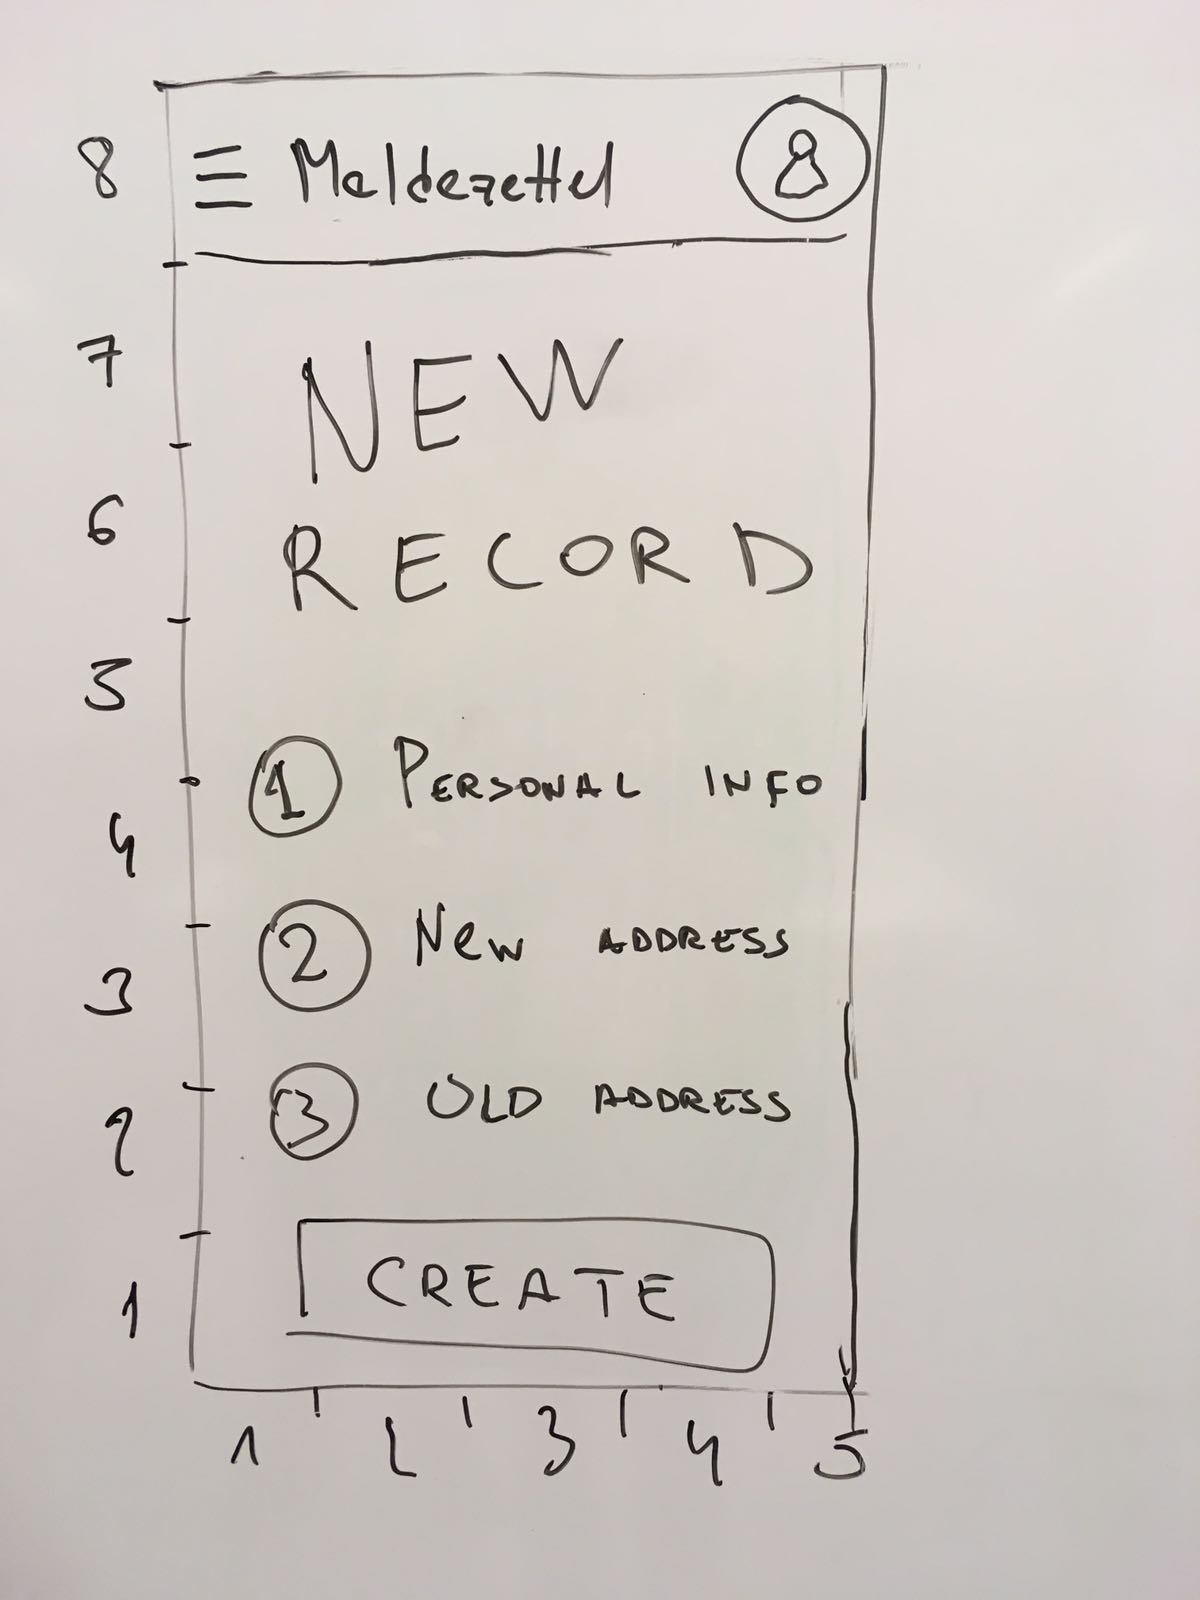 8
Meldezettel
7
NEW
6
RECORD
5
1 PERSONAL INFO
4
2 New ADDRESS
3
3 OLD ADDRESS
2
CREATE
1
1 2 3 4 5